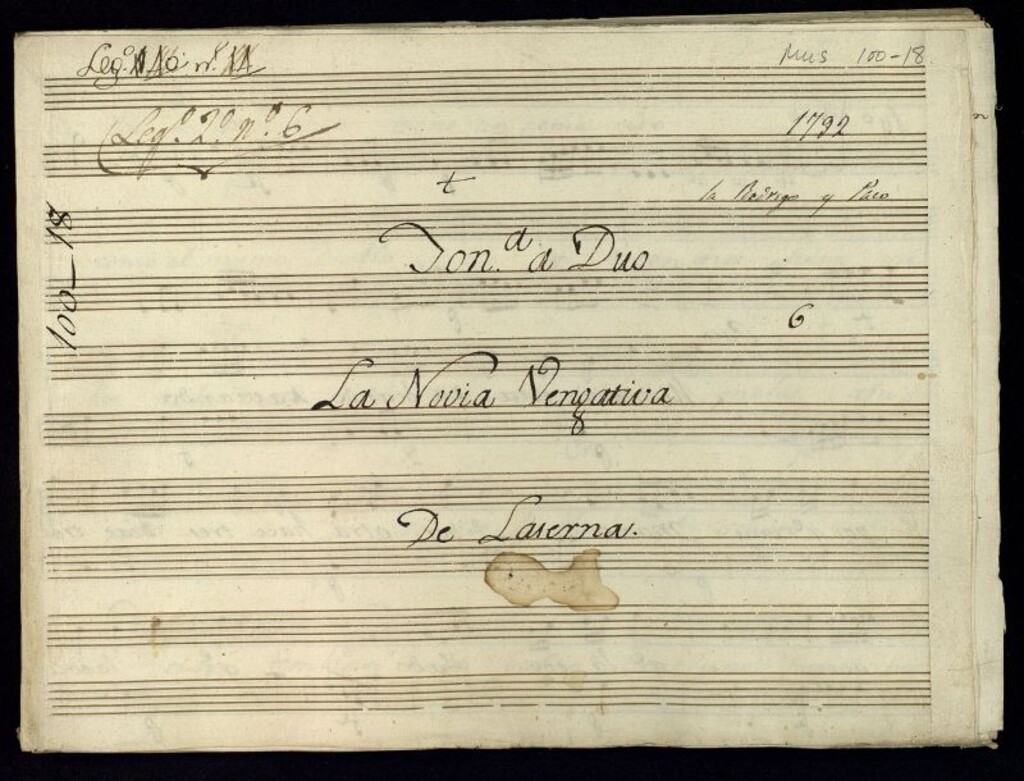 Leg.º nº
Mus 100-18
Leg.º 2.º n.º 6
1792
la Rodrigo y Paco
100-18
Ton.ª a Duo
6
La Novia Vengativa
8
De Laserna.